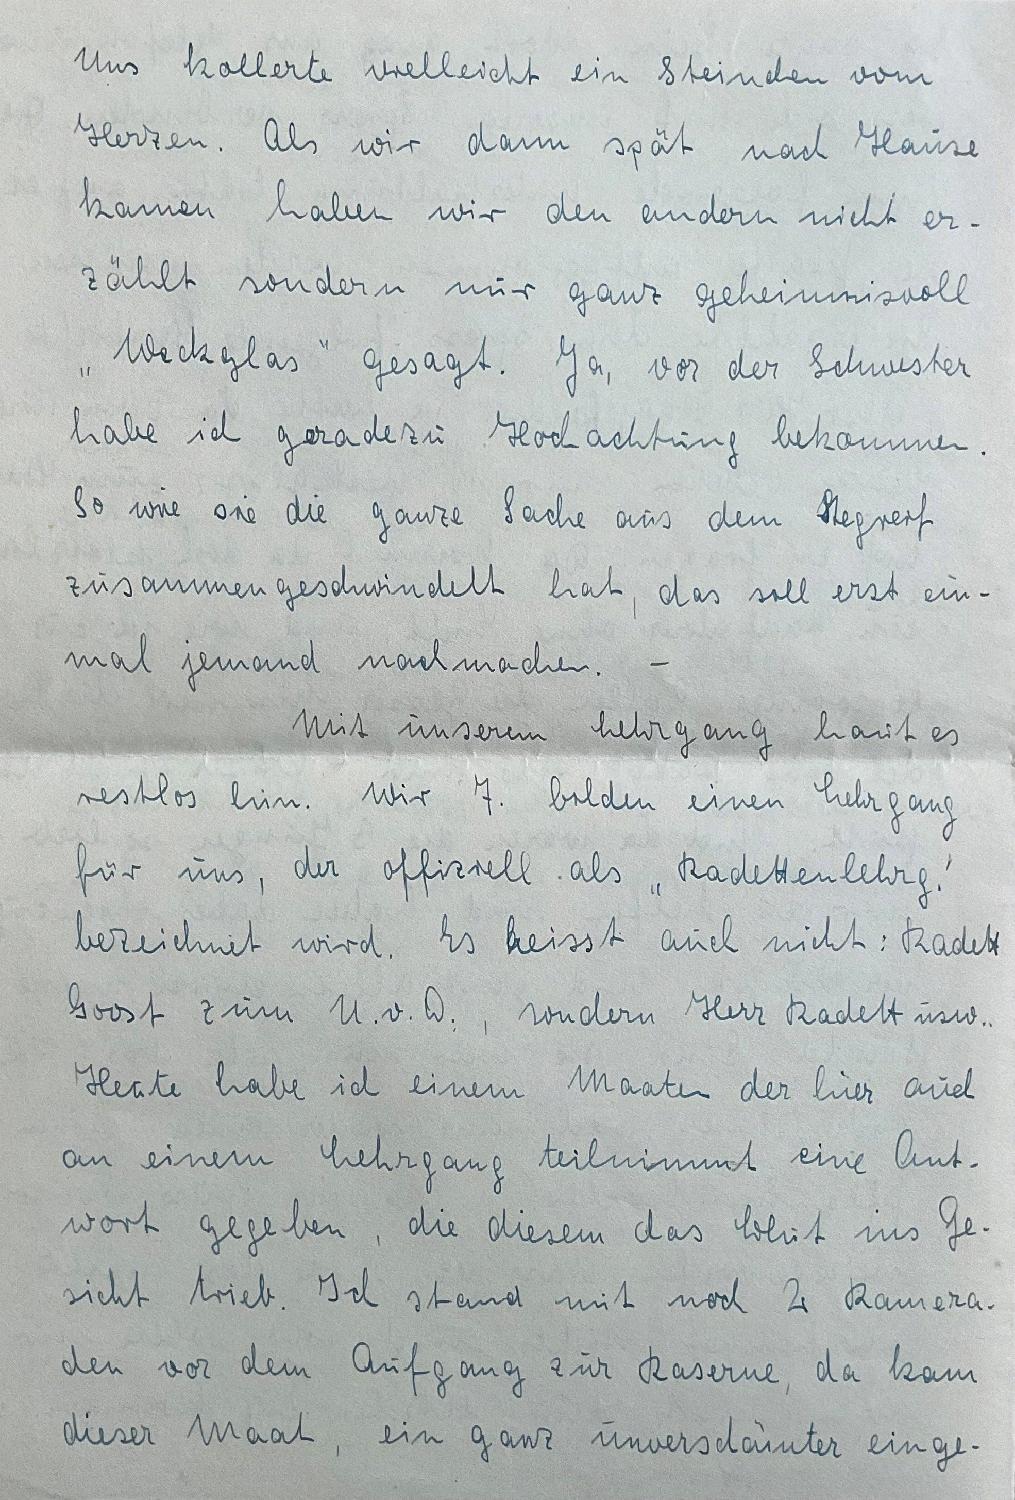 Uns kollerte vielleicht ein Steinchen vom
Herzen. Als wir dann spät nach Hause
kamen haben wir den andern nicht er-
zählt sondern nur ganz geheimnisvoll
„Weckglas" gesagt. Ja, vor der Schwester
habe ich geradezu Hochachtung bekommen.
So wie sie die ganze Sache aus dem Stegreif
zusammengeschwindelt hat, das soll erst ein-
mal jemand nachmachen. –
Mit unserem Lehrgang haut es
restlos hin. Wir 7. bilden einen Lehrgang
für uns, der offiziell als „Kadettenlehrg."
bezeichnet wird. Es heisst auch nicht: Kadett
Goost zum U.v.D., sondern Herr Kadett usw..
Heute habe ich einem Maaten der hier auch
an einem Lehrgang teilnimmt eine Ant-
wort gegeben, die diesem das Blut ins Ge-
sicht trieb. Ich stand mit noch 2 Kamera-
den vor dem Aufgang zur Kaserne, da kam
dieser Maat, ein ganz unverschämter einge-